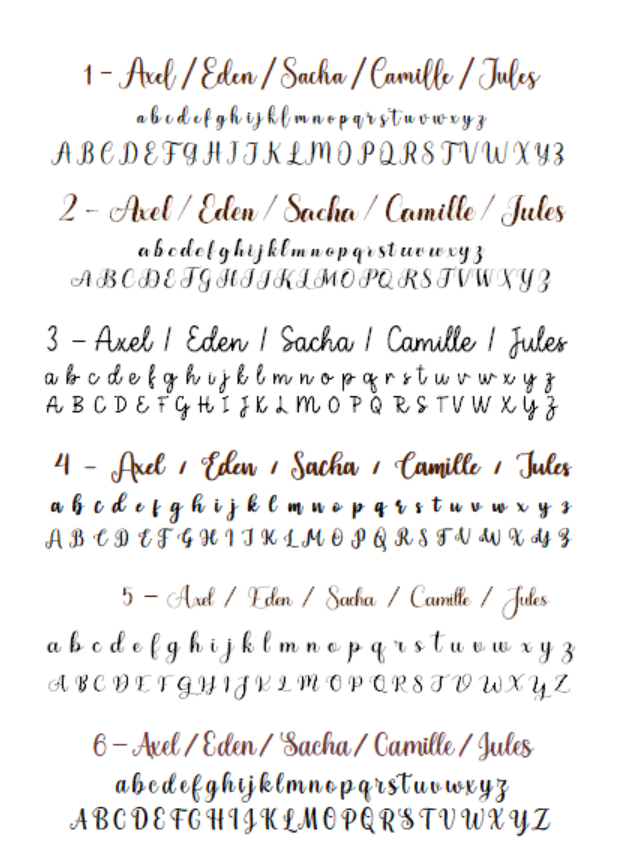 1 - Axel / Eden / Sacha / Camille / Jules
a b c d e f g h i j k l m n o p q r s t u v w x y z
A B C D E F G H I J K L M O P Q R S T V W X Y Z
2 - Axel / Eden / Sacha / Camille / Jules
a b c d e f g h i j k l m n o p q r s t u v w x y z
A B C D E F G H I J K L M O P Q R S T V W X Y Z
3 - Axel / Eden / Sacha / Camille / Jules
a b c d e f g h i j k l m n o p q r s t u v w x y z
A B C D E F G H I J K L M O P Q R S T V W X Y Z
4 - Axel / Eden / Sacha / Camille / Jules
a b c d e f g h i j k l m n o p q r s t u v w x y z
A B C D E F G H I J K L M O P Q R S T V W X Y Z
5 - Axel / Eden / Sacha / Camille / Jules
a b c d e f g h i j k l m n o p q r s t u v w x y z
A B C D E F G H I J K L M O P Q R S T V W X Y Z
6 - Axel / Eden / Sacha / Camille / Jules
a b c d e f g h i j k l m n o p q r s t u v w x y z
A B C D E F G H I J K L M O P Q R S T V W X Y Z